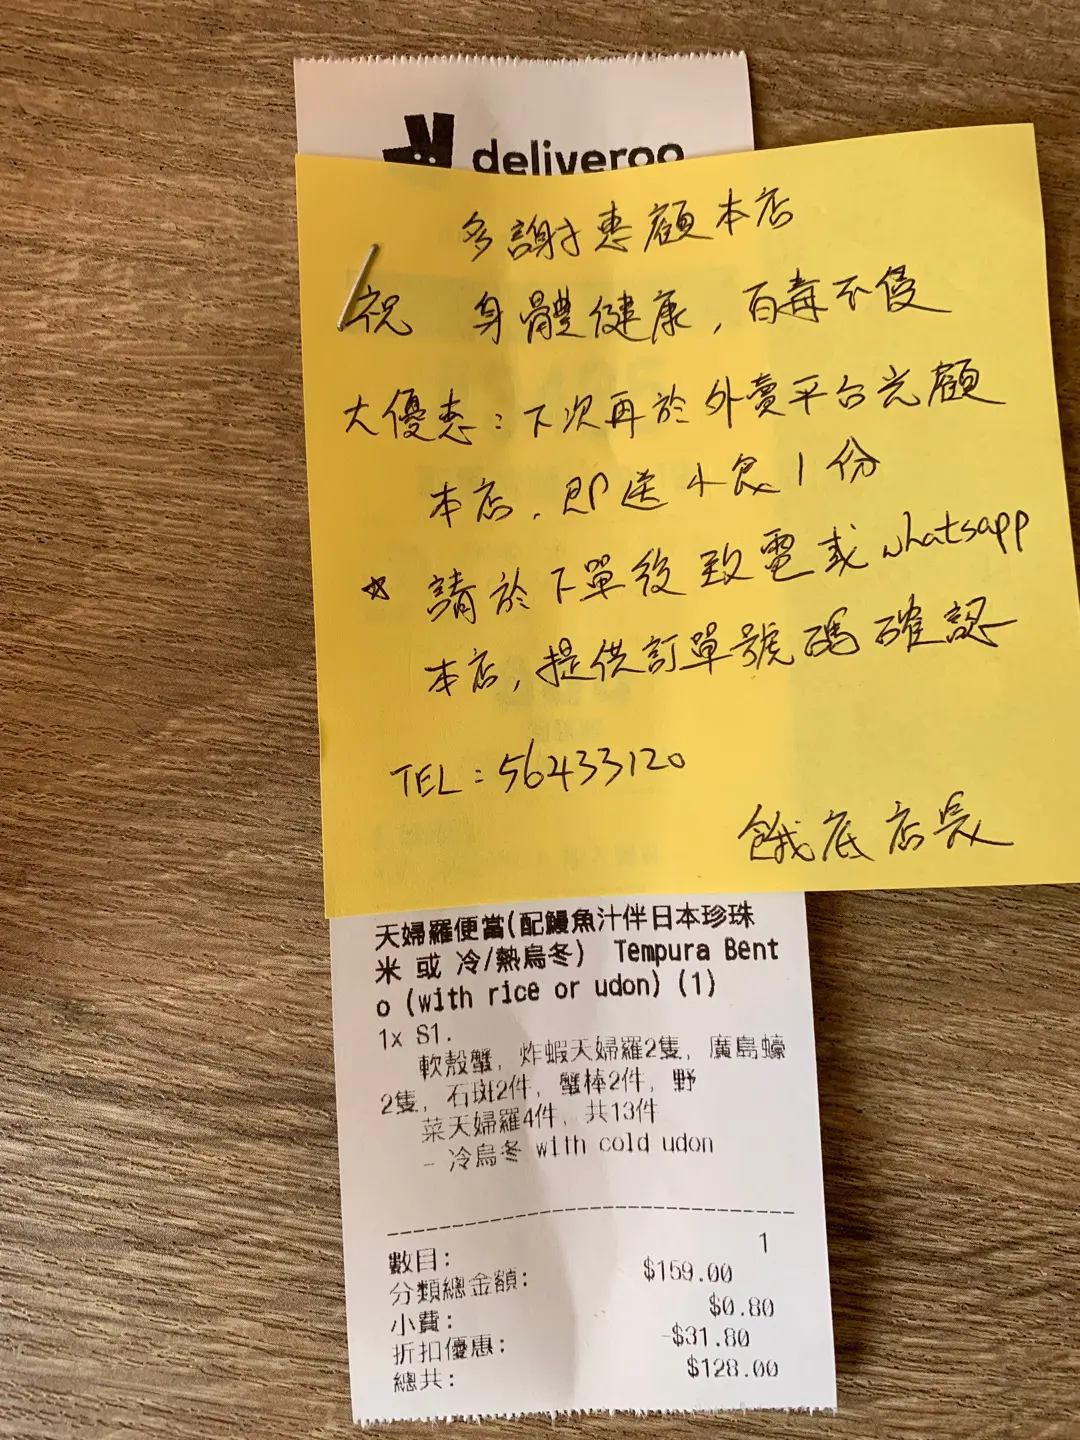 deliveroo
多謝惠顧本店
祝 身體健康，百毒不侵
大優惠：下次再於外賣平台光顧
本店，即送小食1份
☆ 請於下單後致電或whatsapp
本店，提供訂單號碼確認
TEL：56433120
餓底店長
天婦羅便當(配鰻魚汁伴日本珍珠
米 或 冷/熱烏冬) Tempura Bent
o (with rice or udon) (1)
1x S1.
軟殼蟹, 炸蝦天婦羅2隻, 廣島蠔
2隻, 石斑2件, 蟹棒2件, 野
菜天婦羅4件, 共13件
- 冷烏冬 with cold udon
數目: 1
分類總金額: $159.00
小費: $0.80
折扣優惠: -$31.80
總共: $128.00